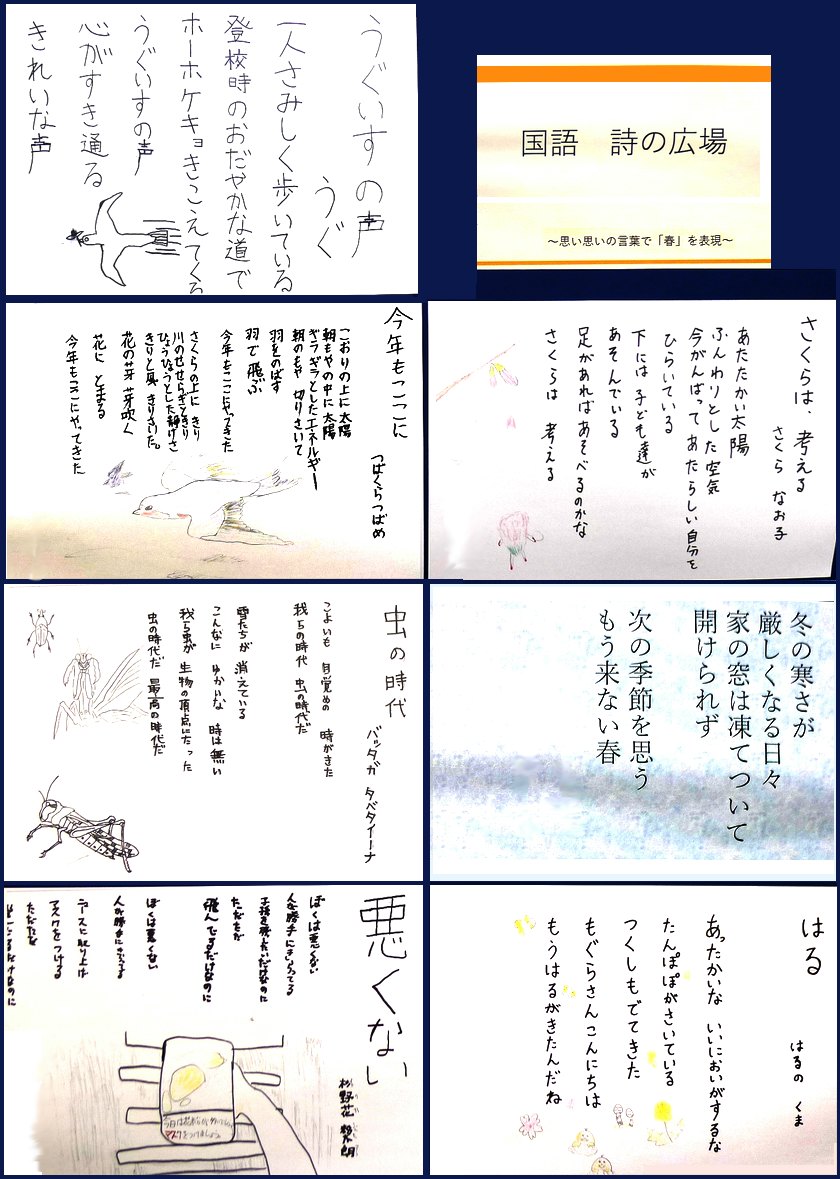 国語　詩の広場
～思い思いの言葉で「春」を表現～
うぐいすの声
うぐ
一人さみしく歩いている
登校時のおだやかな道で
ホーホケキョきこえてくる
うぐいすの声
心がすき通る
きれいな声
さくらは、考える
さくら なお子
あたたかい太陽
ふんわりとした空気
今がんばって あたらしい自分を
ひらいている
下には 子ども達が
あそんでいる
足があれば あそべるのかな
さくらは 考える
今年もここに
つばくらつばめ
こおりの上に太陽
朝もやの中に太陽
ギラギラとしたエネルギー
朝のもや 切りさいて
羽をのばす
羽で飛ぶ
今年もここにやってきた
さくらの上に きり
川のせせらぎときり
ひゅうひゅうとした静けさ
きりと風 きりさいた。
花の芽 芽吹く
花に とまる
今年もここにやってきた
冬の寒さが
厳しくなる日々
家の窓は凍てついて
開けられず
次の季節を思う
もう来ない春
虫の時代
バッタガ タベタイーナ
こよいも 目覚めの 時がきた
我らの時代 虫の時代だ
雪たちが 消えている
こんなに ゆかいな 時は無い
我ら虫が 生物の頂点にたった
虫の時代だ 最高の時代だ
はる
はるの くま
あったかいな いいにおいがするな
たんぽぽがさいている
つくしもでてきた
もぐらさんこんにちは
もうはるがきたんだね
悪くない
杉野花
ぼくは悪くない
人に勝手にきらわれてる
子孫を残したいだけなのに
ただただ
飛んでるだけなのに
ぼくは悪くない
人が勝手に
ニュースに取り上げ
マスクをつける
ただただ